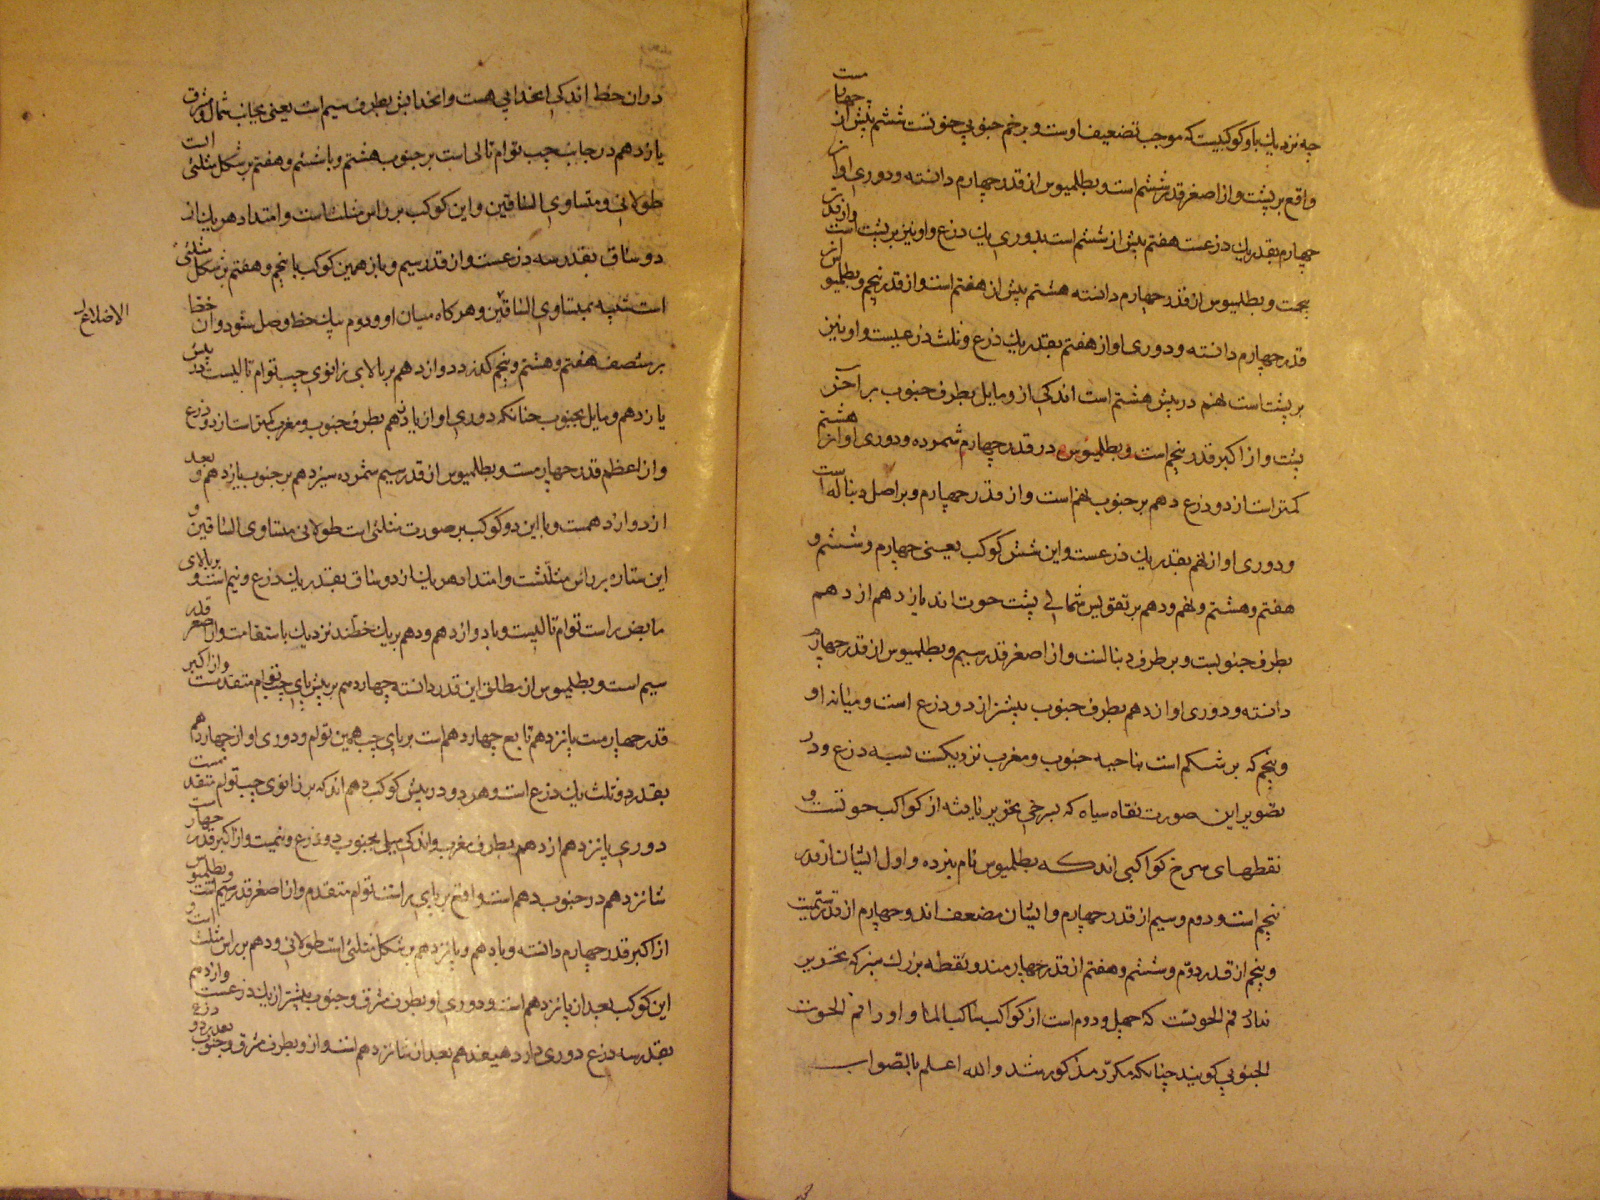 چه نزدیك باو کوکبیست که موجب تضعیف اوست و بر خم جنوبی حوتست ششم پیش از چهارمست
واقع بر پشت و از اصغر قدر ششم است و بطلمیوس از قدر چهارم دانسته و دوری او از
چهارم بقدر یك ذرعست هفتم پیش از ششم است بدوری یك ذرع و او نیز بر پشت است و از قدر
پنجمست و بطلمیوس از قدر چهارم دانسته هشتم پیش از هفتم است و از قدر پنجم و بطلمیوس از
قدر چهارم دانسته و دوری او از هفتم بقدر یك ذرع و ثلث ذرعیست و او نیز
بر پشت است نهم در پیش هشتم است اندکی از و مایل بطرف جنوب بر آخر
پشت و از اکبر قدر پنجم است و بطلمیوس در قدر چهارم شمرده و دوری او از هشتم
کمتر است از دو ذرع دهم بر جنوب نهم است و از قدر چهارم و بر اصل دنباله است
و دوری او از نهم بقدر یك ذرعست و این شش کوکب یعنی چهارم و ششم و
هفتم و هشتم و نهم و دهم بر تقویس شمالی پشت حوت اند یازدهم از دهم
بطرف جنوبست و بر طرف دنبالست و از اصغر قدر سیم و بطلمیوس از قدر چهارم
دانسته و دوری او از دهم بطرف جنوب بیشتر از دو ذرع است و میانه او
و پنجم که بر شکم است بناحیه جنوب و مغرب نزدیکست بسه ذرع و در
تصویر این صورت نقاه سیاه که بسرخی تحویر نایشه از کواکب حوتست و
نقطهای سرخ کواکبی اند که بطلمیوس نام نبرده و اول ایشان از قدر
پنجم است و دوم و سیم از قدر چهارم و ایشان مضعف اند و چهارم از قدر ششمست
و پنجم از قدر دوم و ششم و هفتم از قدر چهارمند و نقطه بزرك سبز که تحریر
فم الحوتست که چهل و دوم است از کواکب ساکب الماء و او را فم الحوت
الجنوبی کویند چنانکه مکرر مذکور شد و الله اعلم بالصواب
در آن خط اندکی انحدابی هست و انحدابش بطرف سیم است یعنی بجانب شمال و مشرق
یازدهم در جانب چپ توام تالی است بر جنوب هشتم و با ششم و هفتم بر شکل مثلثی است
طولانی و متساوی الساقین و این کوکب بر راس مثلث است و امتداد هر یك از
دو ساق بقدر سه ذرعست و از قدر سیم و باز همین کوکب با پنجم و هفتم بر شکل مثلثی
است شبیه بمتساوی الساقین و هر کاه میان او و دوم بیك خط وصل شود و آن خط
الاضلاع
بر منتصف هفتم و هشتم و پنجم کذرد دوازدهم بر بالای زانوی چپ توام تالیست پیش
یازدهم و مایل بجنوب چنانکه دوری او از یازدهم بطرف جنوب و مغرب کمتر است از دو ذرع
و از اعظم قدر چهارمست و بطلمیوس از قدر سیم شمرده سیزدهم بر جنوب یازدهم و بعد
از دوازدهمست و با این دو کوکب بر صورت مثلثی است طولانی متساوی الساقین و
این ستاره بر راس مثلثست و امتداد هر یك از دو ساق بقدر یك ذرع و نیم است و بر بالای
مابض راست توام تالیست و با دوازدهم و دهم بر یك خطند نزدیك باستقامت و از اصغر قدر
سیم است و بطلمیوس از مطلق این قدر دانسته چهاردهم بر پیش پای چپ توام متقدمست و از اکبر
قدر چهارمست پانزدهم تابع چهاردهم است بر پای چپ همین توام و دوری او از چهاردهم
بقدر دو ثلث یك ذرع است و هر دو در پیش کوکب دهم اند که بر زانوی چپ توام متقدمست
دوری پانزدهم از دهم بطرف مغرب و اندکی میل بجنوب دو ذرع و نیمست و از اکبر قدر چهارست
شانزدهم در جنوب دهم است واقع بر پای راست توام متقدم و از اصغر قدر سیم است و بطلمیوس
از اکبر قدر چهارم دانسته و با دهم و پانزدهم بر شکل مثلثی است طولانی و دهم بر راس مثلث است و
این کوکب بعد از پانزدهم است و دوری او بطرف مشرق و جنوب بیشتر از یك ذرعست و از دهم
بقدر سه ذرع دوری دارد هیفدهم بعد از شانزدهم است و از و بطرف مشرق و جنوب بعد بر دو ذرع